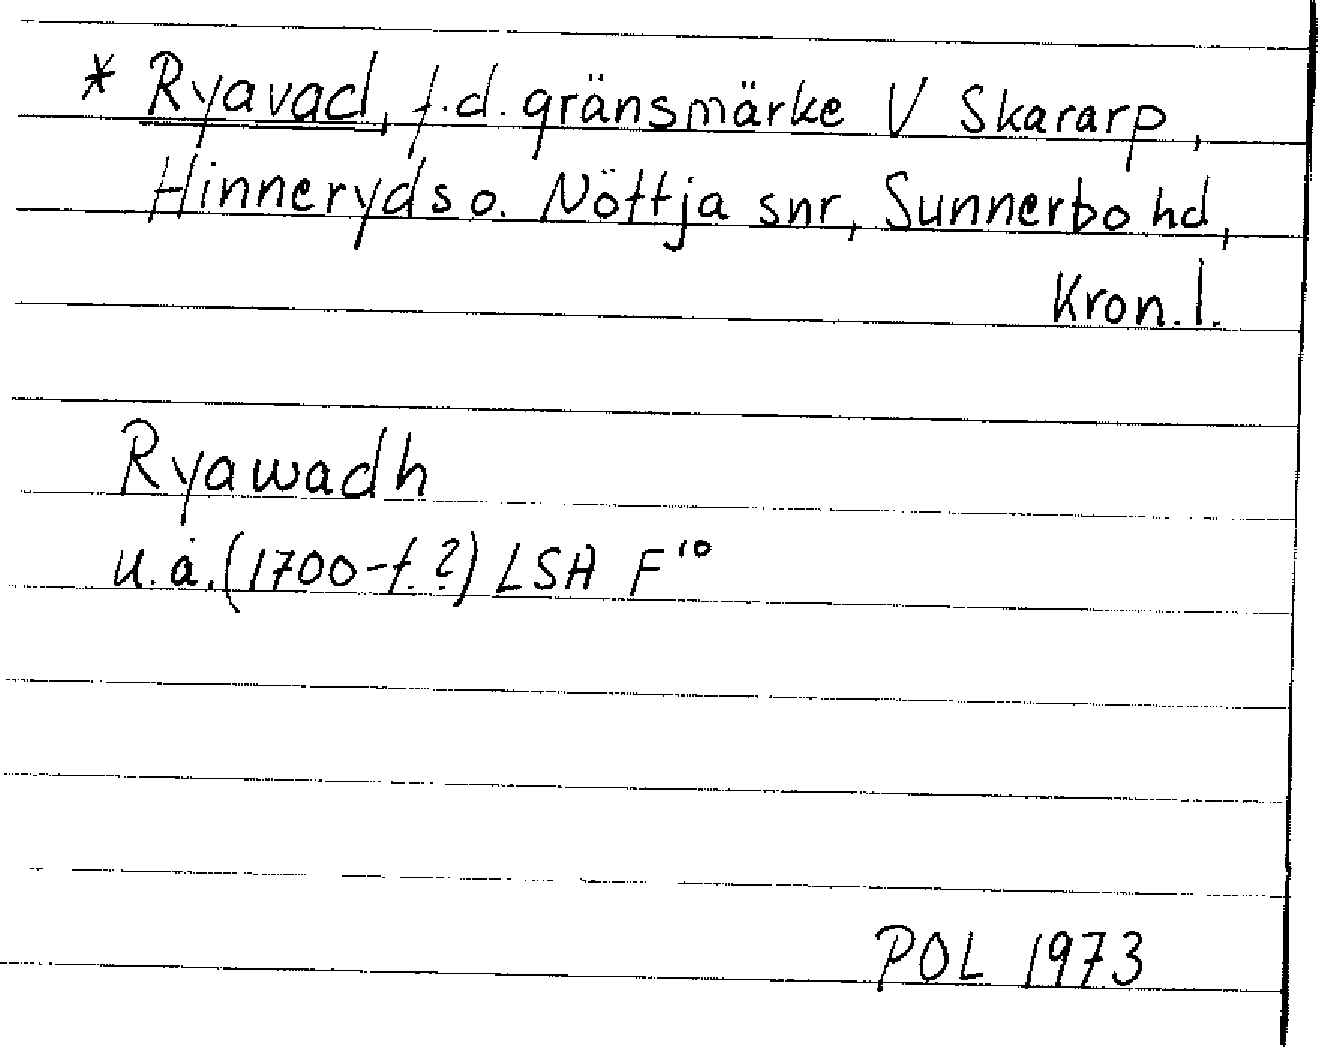 * Ryavad, f.d. gränsmärke V Skararp,
Hinneryds o. Nöttja snr, Sunnerbo hd,
Kron. l.
Ryawadh
u.å. (1700-t.?) LSA F¹⁰
POL 1973